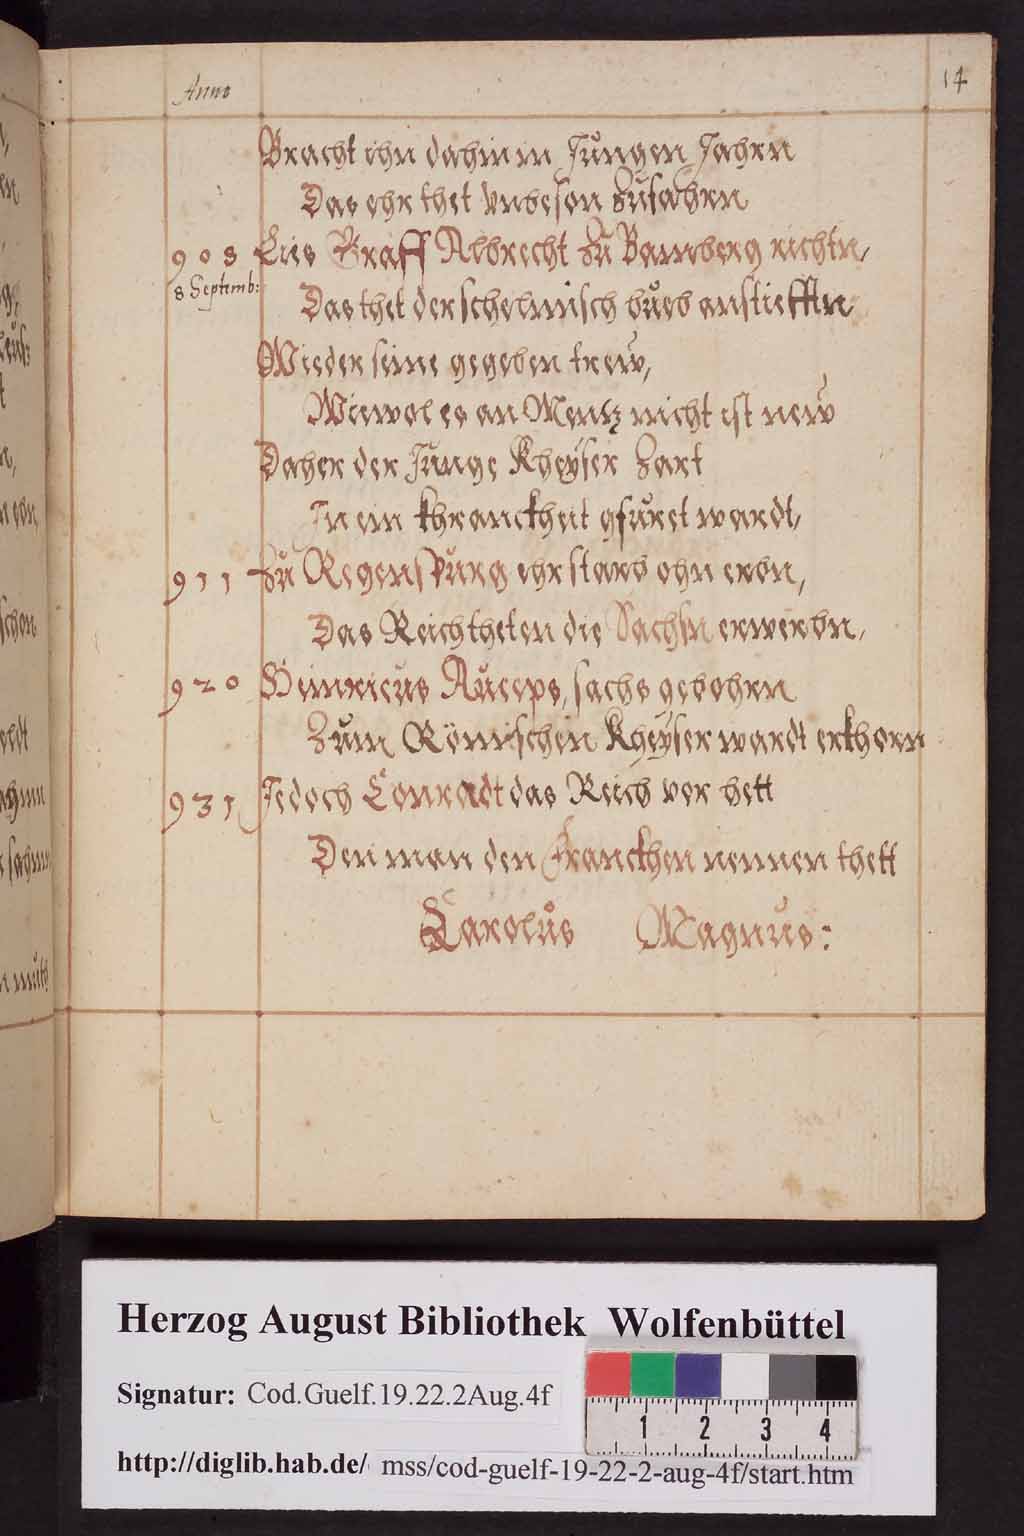 Anno
14
Bracht ihn dahin in Jungen Jahrn
Das ehr thet vnbeson Zufahrn
908 Lies Graff Albrecht Zu Bamberg richtn,
8 Septemb:
Das thet der schelmisch bueb anstiefftn
Wieder seine gegeben trew,
Wiewol es an Mentz nicht ist new
Daher der Junge Kheyser Zart
In ein khranckheit gfüret wardt,
911 Zu Regenspurg ehr starb ohn erbn,
Das Reich theten die Sachsn erwerbn,
920 Heinricus Auceps, sachs gebohrn
Zum Römischen Kheyser wardt erkhorn
931 Jedoch Conradt das Reich vor hett
Den man den Franckhen nennen thett
Carolus Magnus:
Herzog August Bibliothek Wolfenbüttel
Signatur: Cod.Guelf.19.22.2Aug.4f
1 2 3 4
http://diglib.hab.de/ mss/cod-guelf-19-22-2-aug-4f/start.htm